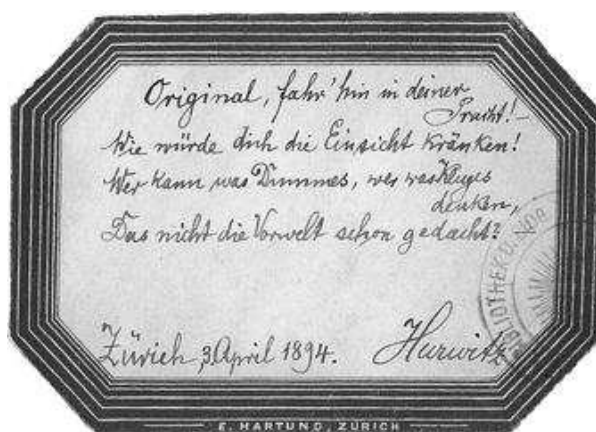 Original, fahr' hin in deiner
Pracht! –
Wie würde dich die Einsicht kränken!
Wer kann was Dummes, wer was Kluges
denken,
Das nicht die Vorwelt schon gedacht?
Zürich, 3. April 1894.
Hurwitz
E. HARTUNG, ZÜRICH